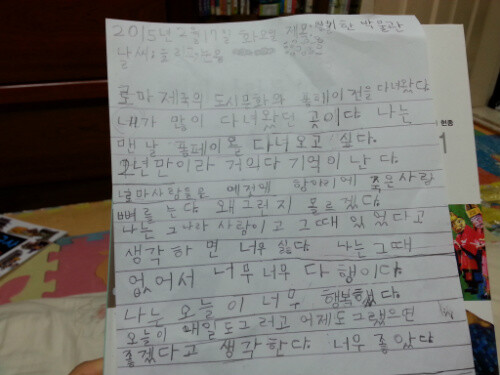 2015년 2월 17일 화요일 제목: 위한 박물관
날씨: 흐리고, 눈옴
로마 제국의 도시문화와 폼페이전을 다녀왔다
내가 많이 다녀왔던 곳이다 나는
맨날 폼페이를 다녀오고 싶다.
2년만이라 거의다 기억이 난다.
로마사람들은 예전에 항아리에 죽은사람
뼈를 는다 왜그런지 모르겠다.
나는 그나라 사람이고 그때 있었다고
생각하면 너무 싫다 나는 그때
없어서 너무너무 다행이다
나는 오늘이 너무 행복했다.
오늘이 매일도그러고 어제도그랬으면
좋겠다고 생각한다 너무 좋았다
한중
1